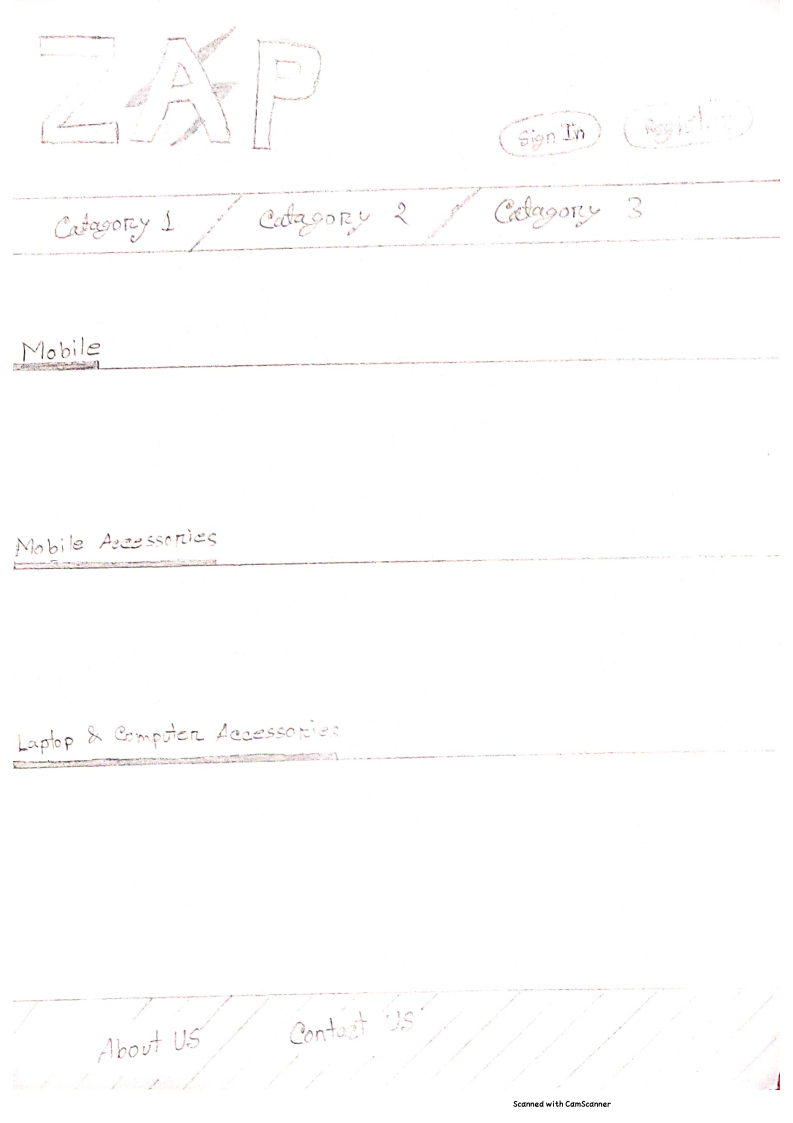 ZAP
Sign In Register
Catagory 1 / Catagory 2 / Catagory 3
Mobile
Mobile Accessories
Laptop & Computer Accessories
About US Contact US
Scanned with CamScanner